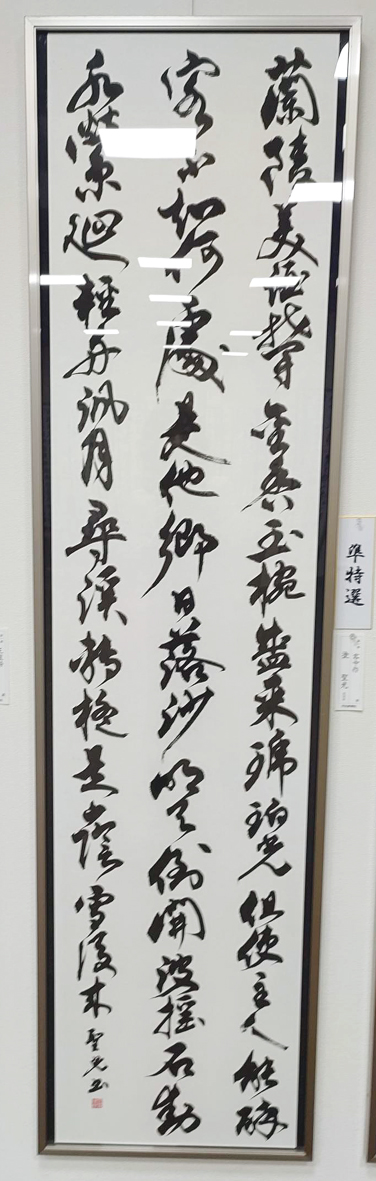 蘭陵美酒鬱金香玉椀盛来琥珀光但使主人能醉
客不知何處是他郷日落沙明天倒開波揺石動
水縈廻軽舟汎月尋渓転疑是山陰雪後来 聖光書
準特選
聖光